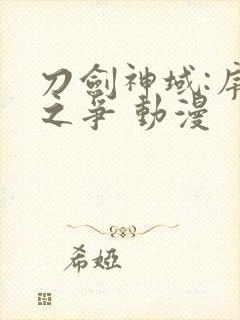 刀劍神域:序
之爭 動漫
希婭